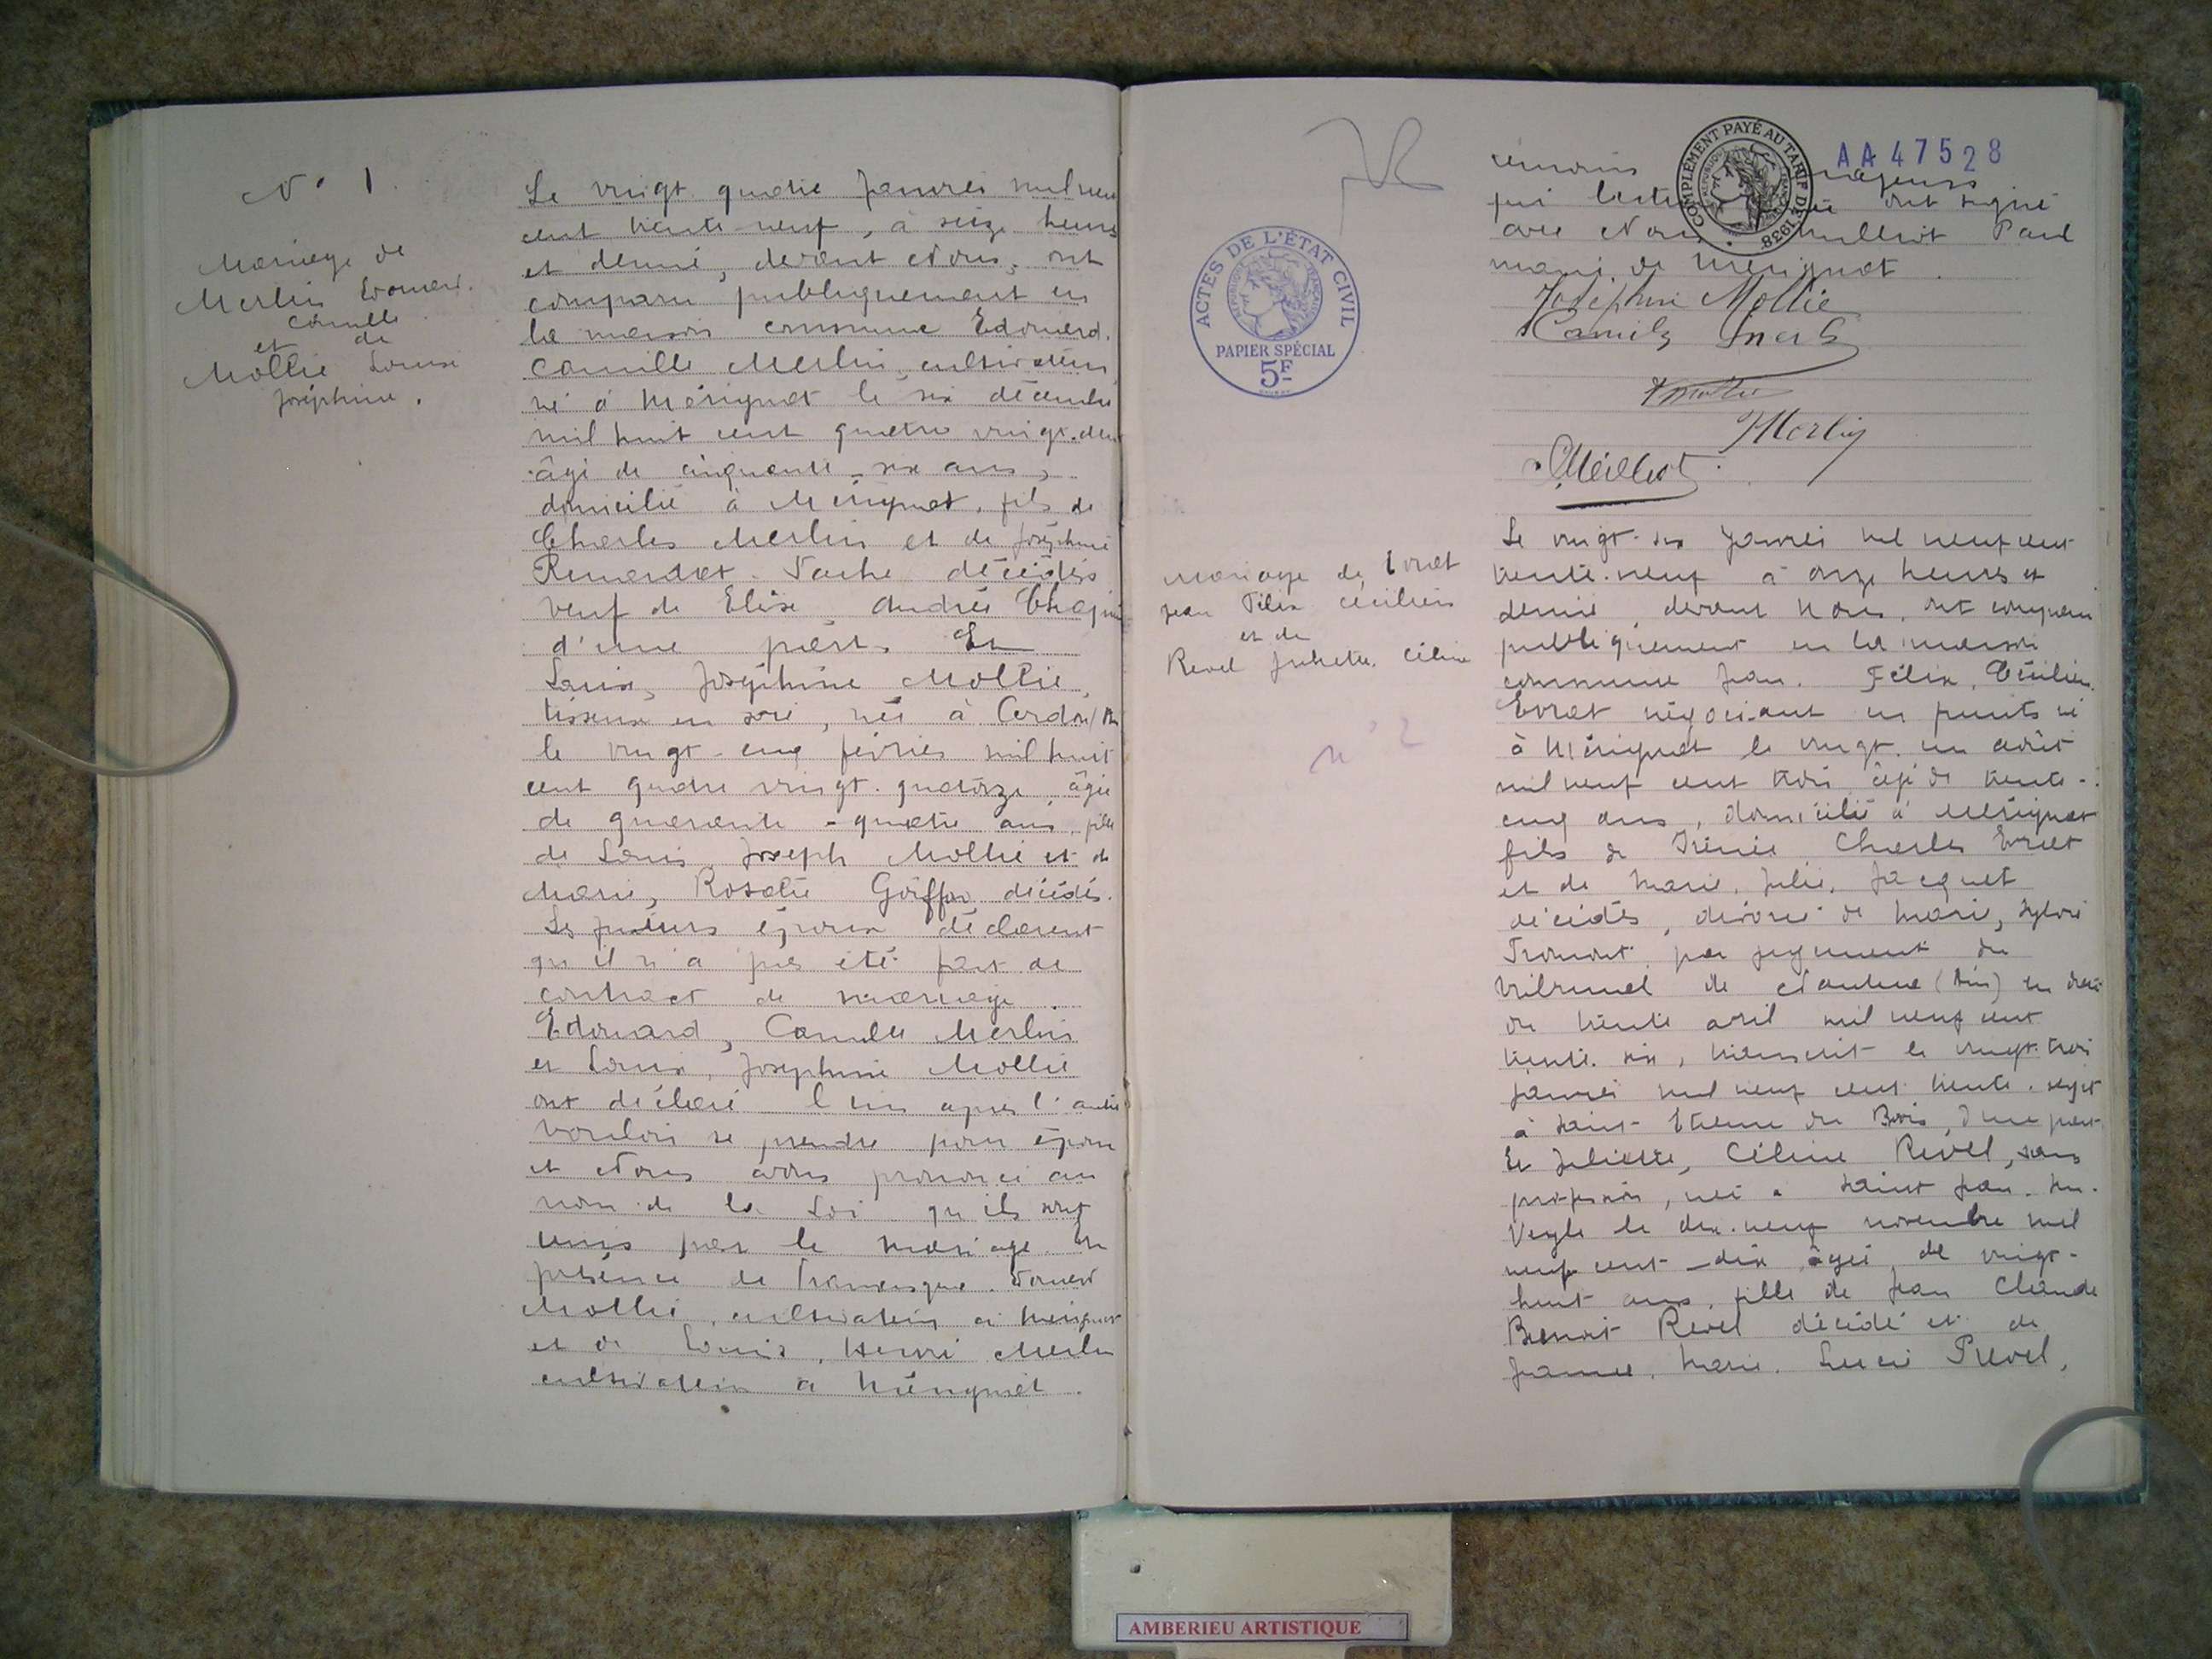 N° 1.
Mariage de
Merlin Edouard.
Camille
et de
Mollie Louise
Joséphine.
Le vingt quatre Janvier mil neuf
cent trente-neuf, à seize heures
et demie, devant Nous, ont
comparu publiquement en
la maison commune Edouard.
Camille Merlin, cultivateur
né à Mérignat le six décembre
mil huit cent quatre vingt-deux
âgé de cinquante-six ans,
domicilié à Mérignat, fils de
Charles Merlin et de Joséphine
décédés
veuf de Elise Andrée
d'une part. Et
Louise, Joséphine Mollie,
tisseuse en soie, née à Cerdon (Ain
le vingt-cinq février mil huit
cent quatre vingt-quatorze, âgée
de quarante-quatre ans, fille
de Louis, Joseph Mollie et de
Marie, Rosalie Goiffon, décédés.
Les futurs époux déclarent
qu'il n'a pas été fait de
contract de mariage.
Edouard, Camille Merlin
et Louise, Joséphine Mollie
ont déclaré l'un après l'autre
vouloir se prendre pour époux
et Nous avons prononcé au
nom de la Loi qu'ils sont
unis par le mariage. En
présence de Francisque
Mollie, cultivateur à Mérignat
et de Louis, Henri Merlin
cultivateur à Mérignat.
AA47528
COMPLÉMENT PAYÉ AU TARIF DE 1938
témoins majeurs
qui lecture ont signé
avec Nous Paul
maire de Mérignat.
Joséphine Mollie
Camille Merlin
Mollie
HMerlin
ACTES DE L'ÉTAT CIVIL
PAPIER SPÉCIAL
5F
Mariage de Evrat
Jean Félix Cécilien
et de
Revel Juliette, Céline
n° 2
Le vingt-six Janvier mil neuf cent
trente-neuf à onze heures et
demie, devant Nous, ont comparu
publiquement en la maison
commune Jean, Félix, Cécilien
Evrat négociant en fruits né
à Mérignat le vingt-un août
mil neuf cent trois âgé de trente-
cinq ans, domicilié à Mérignat
fils de Irénée Charles Evrat
et de Marie, Julie, Jacquet
décédés, divorcé de Marie, Sylvie
par jugement du
tribunal de Nantua (Ain) en date
du trente avril mil neuf cent
trente-six, transcrit le vingt-trois
Janvier mil neuf cent trente-sept
à Saint-Etienne du Bois, d'une part
Et Juliette, Céline Revel, sans
profession, née à Saint Jean-sur-
Veyle le dix-neuf novembre mil
neuf cent-dix âgée de vingt-
huit ans, fille de Jean Claude
Benoit Revel décédé et de
Jeanne, Marie, Lucie
AMBERIEU ARTISTIQUE